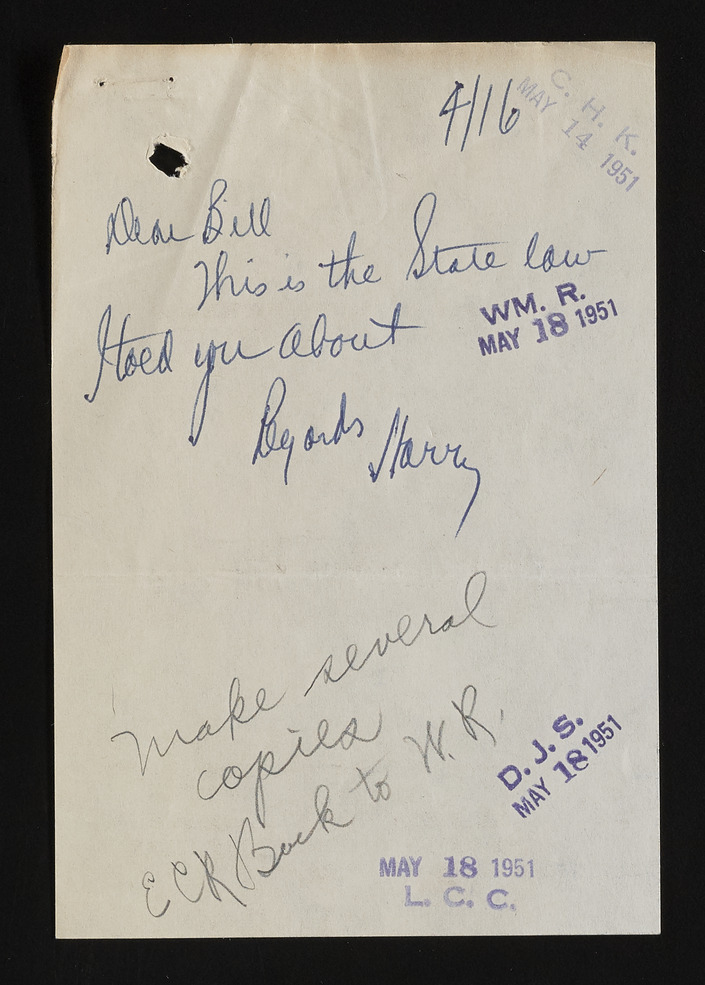 4/16
C. H. K.
MAY 14 1951
Dear Bill
This is the State law
WM. R.
MAY 18 1951
I toed you about
Regards Harry
Make several
copies
ECR Back to W. R.
D. J. S.
MAY 18 1951
MAY 18 1951
L. C. C.